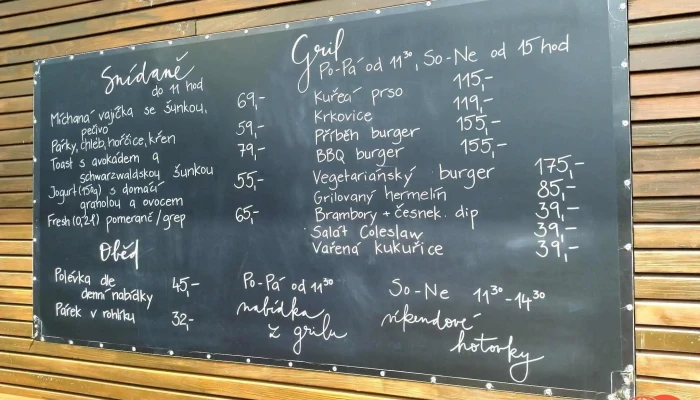 Snídaně
do 11 hod
Míchaná vajíčka se šunkou, 69,-
pečivo
Párky, chléb, hořčice, křen 59,-
Toast s avokádem a 79,-
schwarzwaldskou šunkou
Jogurt (150g) s domácí 55,-
granolou a ovocem
Fresh (0,2l) pomeranč/grep 65,-
Oběd
Polévka dle 45,-
denní nabídky
Párek v rohlíku 32,-
Gril
Po-Pá od 11³⁰, So-Ne od 15 hod
Kuřecí prso 115,-
Krkovice 119,-
Příběh burger 155,-
BBQ burger 155,-
Vegetariánský burger 175,-
Grilovaný hermelín 85,-
Brambory + česnek. dip 39,-
Salát Coleslaw 39,-
Vařená kukuřice 39,-
Po-Pá od 11³⁰
nabídka
z grilu
So-Ne 11³⁰-14³⁰
víkendové
hotovky